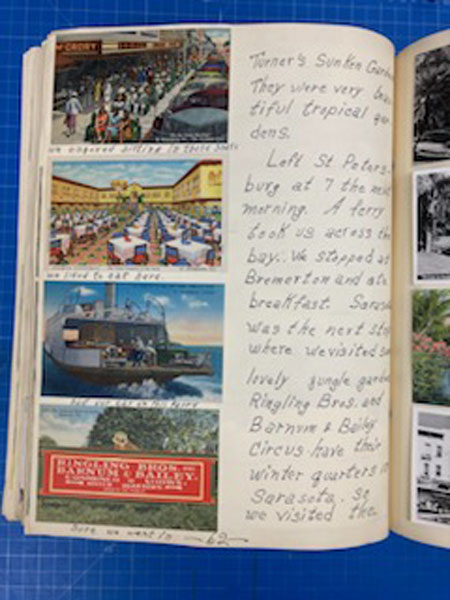 McCRORY
We enjoyed sitting in these seats
We liked to eat here.
Put our car on this ferry
RINGLING BROS. AND
BARNUM & BAILEY.
Sure we went in
—62—
Turner's Sunken Garde
They were very beau
tiful tropical gar
dens.
Left St Peters-
burg at 7 the next
morning. A ferry
took us across the
bay. We stopped at
Bremerton and ate
breakfast. Saraso
was the next sto
where we visited so
lovely jungle garde
Ringling Bros. and
Barnum & Bailey
Circus have their
winter quarters in
Sarasota. So
we visited the